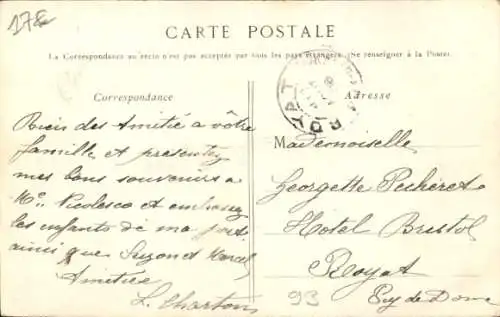 178
CARTE POSTALE
La Correspondance au recto n'est pas acceptée par tous les pays étrangers. (Se renseigner à la Poste).
Correspondance
Adresse
ROYAT
Bien des Amitié a vôtre
famille et présentez
mes bons souvenirs a
et embrassez
les enfants de ma part
ainsi que Suzon et Marcel
Amitiée
L. Charton
Mademoiselle
Georgette
Hotel Bristol
Royat
Puy de Dome
93